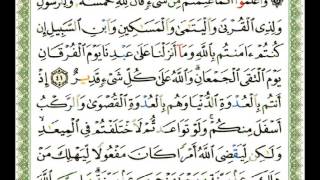 وَاعْلَمُوا أَنَّمَا غَنِمْتُم مِّن شَيْءٍ فَأَنَّ لِلَّهِ خُمُسَهُ وَلِلرَّسُولِ
وَلِذِي الْقُرْبَىٰ وَالْيَتَامَىٰ وَالْمَسَاكِينِ وَابْنِ السَّبِيلِ إِن
كُنتُمْ ءَامَنتُم بِاللَّهِ وَمَا أَنزَلْنَا عَلَىٰ عَبْدِنَا يَوْمَ الْفُرْقَانِ
يَوْمَ الْتَقَى الْجَمْعَانِ وَاللَّهُ عَلَىٰ كُلِّ شَيْءٍ قَدِيرٌ ٤١ إِذْ
أَنتُم بِالْعُدْوَةِ الدُّنْيَا وَهُم بِالْعُدْوَةِ الْقُصْوَىٰ وَالرَّكْبُ
أَسْفَلَ مِنكُمْ وَلَوْ تَوَاعَدتُّمْ لَاخْتَلَفْتُمْ فِي الْمِيعَادِ
وَلَٰكِن لِّيَقْضِيَ اللَّهُ أَمْرًا كَانَ مَفْعُولًا لِّيَهْلِكَ مَنْ